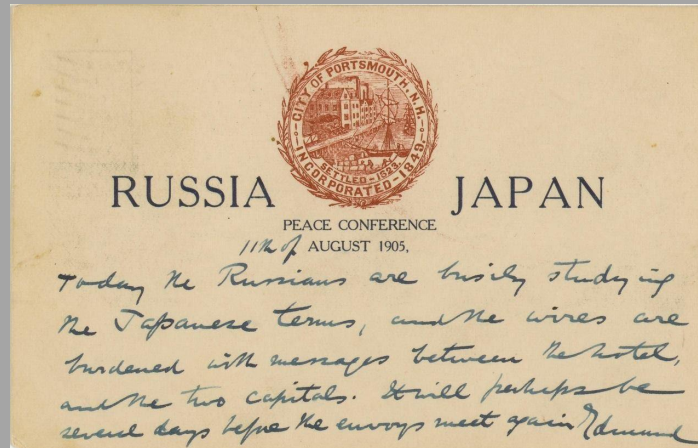 CITY OF PORTSMOUTH, N.H.
SETTLED-1623.
INCORPORATED-1849.
RUSSIA JAPAN
PEACE CONFERENCE
11th of AUGUST 1905,
Today the Russians are busily studying
the Japanese terms, and the wires are
burdened with messages between the hotel,
and the two capitals. It will perhaps be
several days before the envoys meet again Edmund